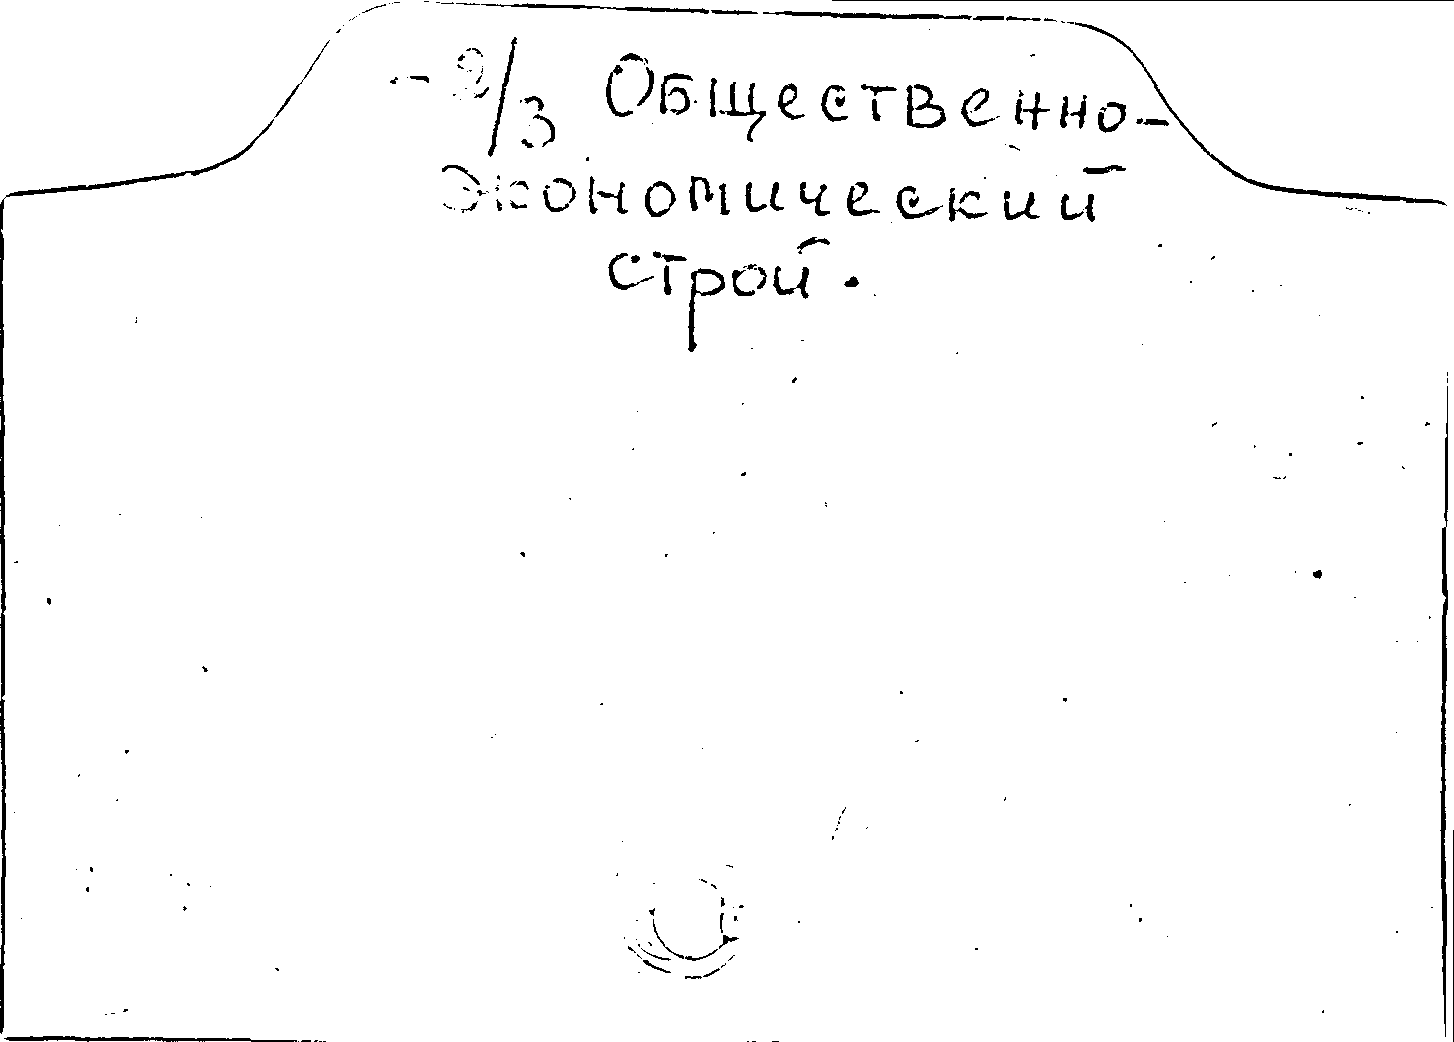 -2/3 Общественно-
экономический
строй.